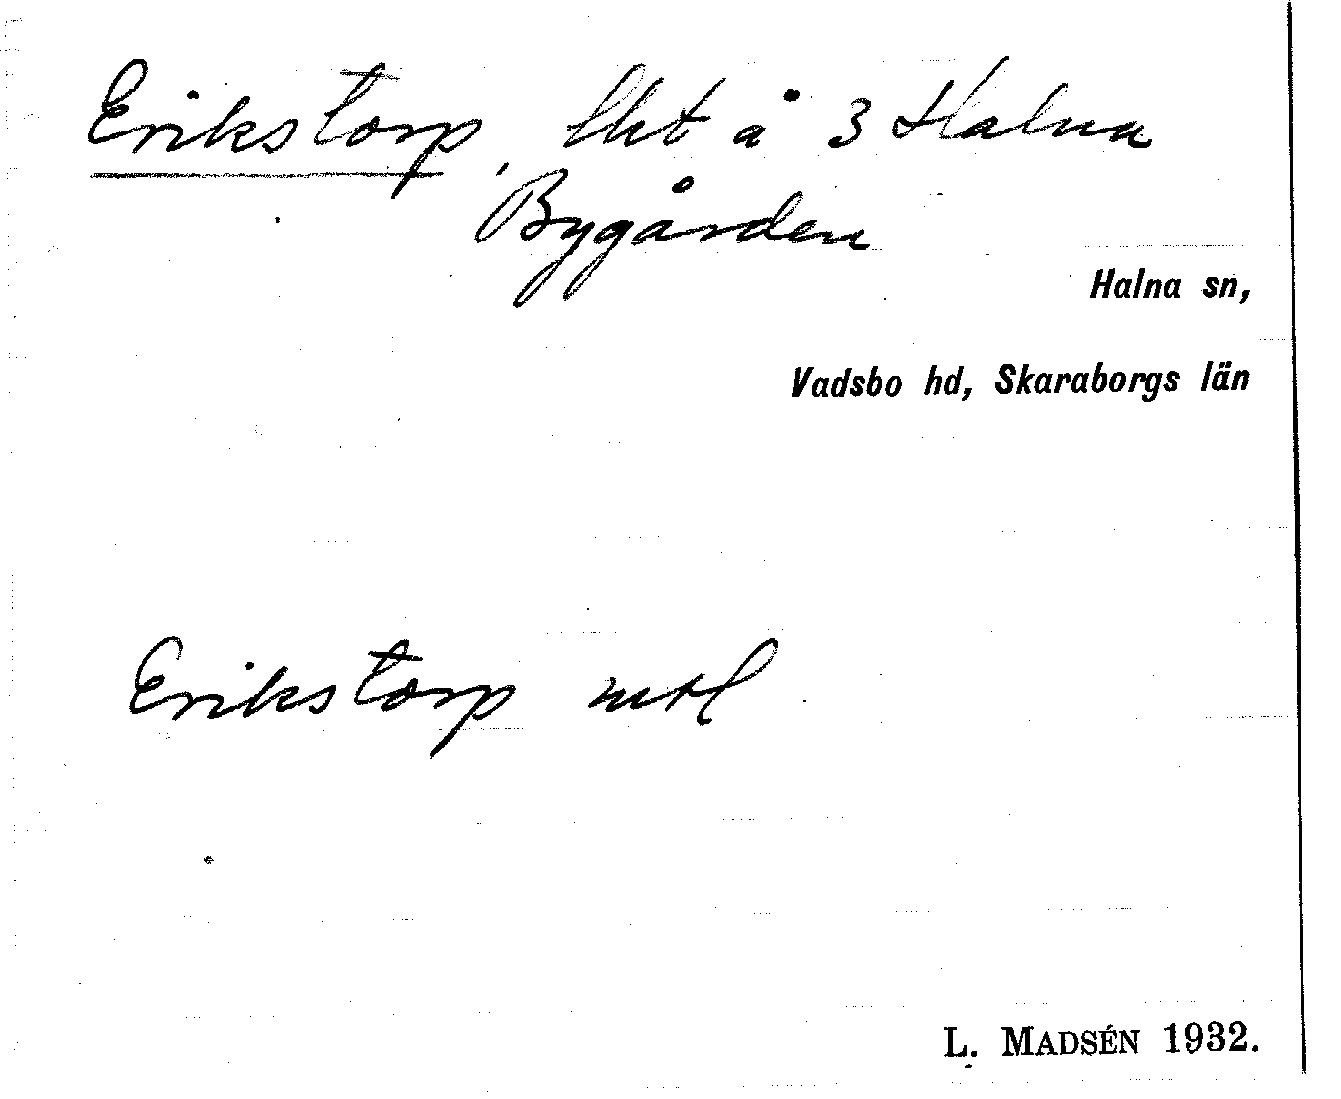 Erikstorp, lht å 3 Halna
Bygården
Halna sn,
Vadsbo hd, Skaraborgs län
Erikstorp mtl
L. MADSÉN 1932.